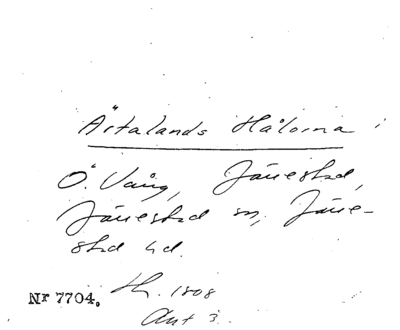 Ärtalands Hålorna
Ö. Vång, Järrestad,
Järrestad sn, Järre-
stad hd.
Nr 7704. Sk. 1808
Akt 3.